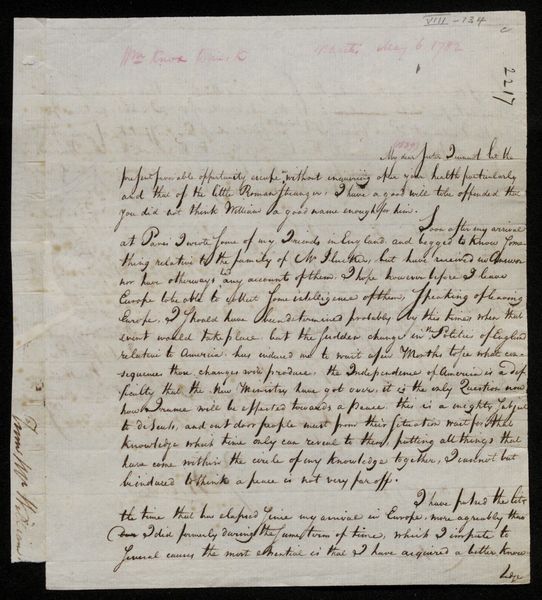 VIII - 134
2217
Nantes May 6 1782
My dear Sister I cannot let the
present favorable opportunity escape without enquiring after your health particularly
and that of the little Roman Stranger, I have a good will to be offended that
you did not think William a good name enough for him.
Soon after my arrival
at Paris I wrote some of my Friends in England and begged to know some
thing relative to the family of Mr Flucker, but have received no Answer
nor have otherways any accounts of them. I hope however before I leave
Europe to be able to collect some intelligence of them, Speaking of leaving
Europe, I should have been determined probably by this time when that
event would take place, but the sudden change in the Politics of England
relative to America has induced me to wait a few Months to see what con-
sequences those changes will produce, the Independence of America is a dif-
ficulty that the New Ministry have got over, it is the only Question now
how France will be affected towards a peace. this is a mighty subject
to discuss, and out door people must from their situation wait for that
knowledge which time only can reveal to them, putting all things that
have come within the circle of my knowledge together, I cannot but
be induced to think a peace is not very far off.
I have passed the
the time that has elapsed since my arrival in Europe, more agreeably than
I did formerly during the same term of time, which I impute to
several causes the most essential is that I have acquired a better know-
ledge
From Wm